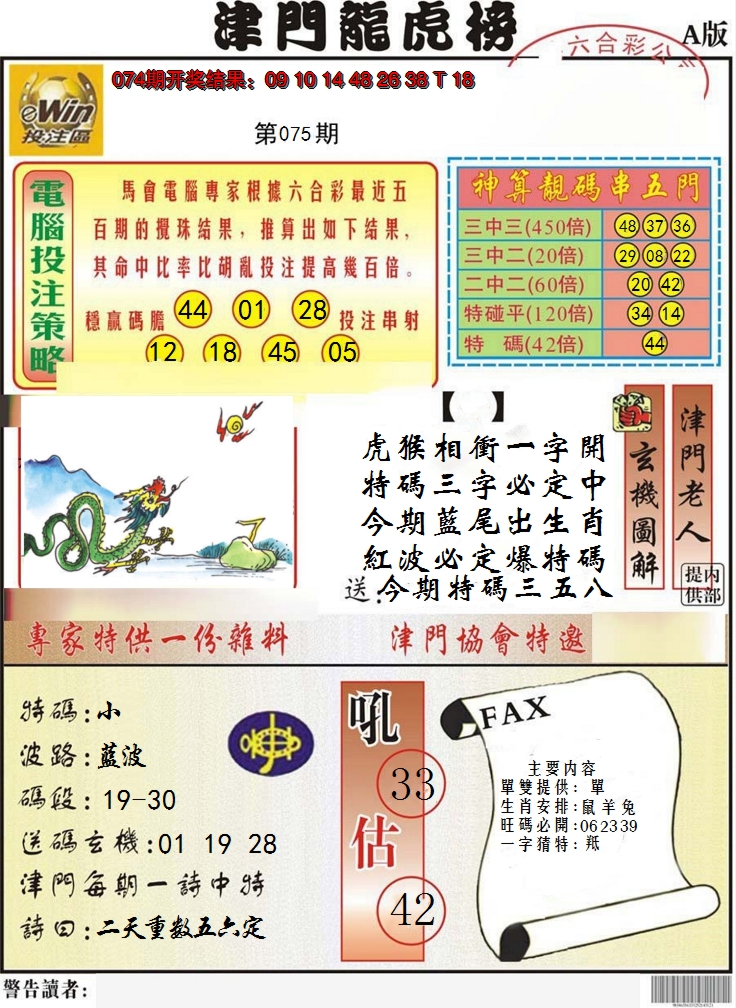 津門龍虎榜
A版
六合彩公
eWin
投注區
074期开奖结果：09 10 14 48 26 38 T 18
第075期
電腦投注策略
馬會電腦專家根據六合彩最近五
百期的攪珠结果，推算出如下结果，
其命中比率比胡亂投注提高幾百倍。
穩贏碼膽 44 01 28 投注串射
12 18 45 05
神算靚碼串五門
三中三(450倍) 48 37 36
三中二(20倍) 29 08 22
二中二(60倍) 20 42
特碰平(120倍) 34 14
特 碼(42倍) 44
【 】
虎猴相衝一字開
特碼三字必定中
今期藍尾出生肖
紅波必定爆特碼
送:今期特碼三五八
玄機圖解
津門老人
内部提供
專家特供一份雜料
津門協會特邀
特碼:小
波路:藍波
碼段:19-30
送碼玄機:01 19 28
津門每期一詩中特
詩曰:二天重数五六定
吼
33
估
42
FAX
主要内容
單雙提供: 單
生肖安排:鼠羊兔
旺碼必開:062339
一字猜特:
警告讀者: